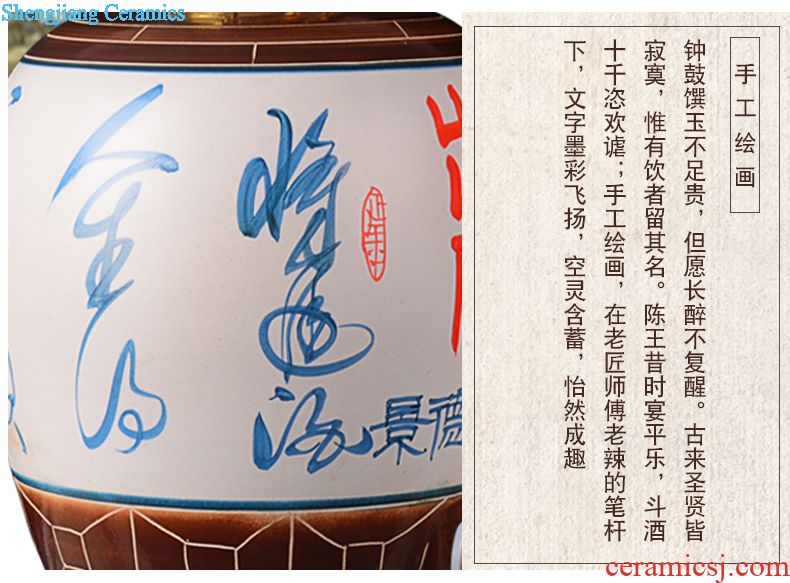 Shengjiang Ceramics
景德
手工绘画
钟鼓馔玉不足贵，但愿长醉不复醒。古来圣贤皆
寂寞，惟有饮者留其名。陈王昔时宴平乐，斗酒
十千恣欢谑；手工绘画，在老匠师傅老辣的笔杆
下，文字墨彩飞扬，空灵含蓄，怡然成趣
ceramicsj.com